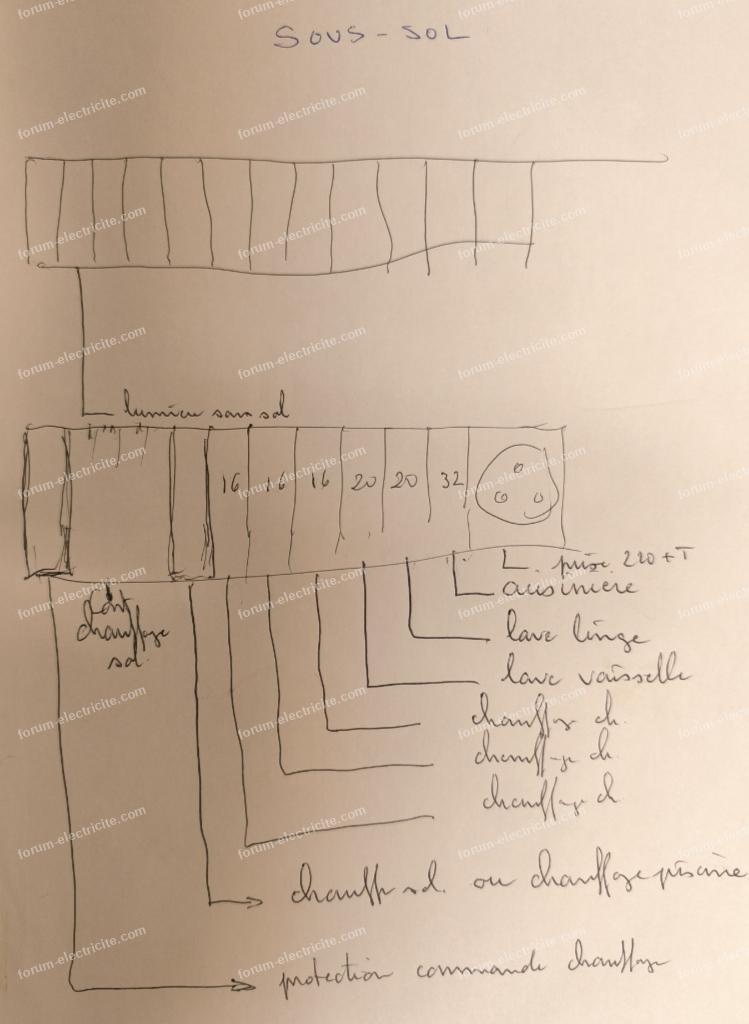 SOUS - SOL
lumière sous sol
16 16 16 20 20 32
prise 220 + T
cuisinière
Cont
chauffage
sol.
lave linge
lave vaisselle
chauffage ch.
chauffage ch.
chauffage ch
chauff sol. ou chauffage piscine
protection commande chauffage
forum-electricite.com